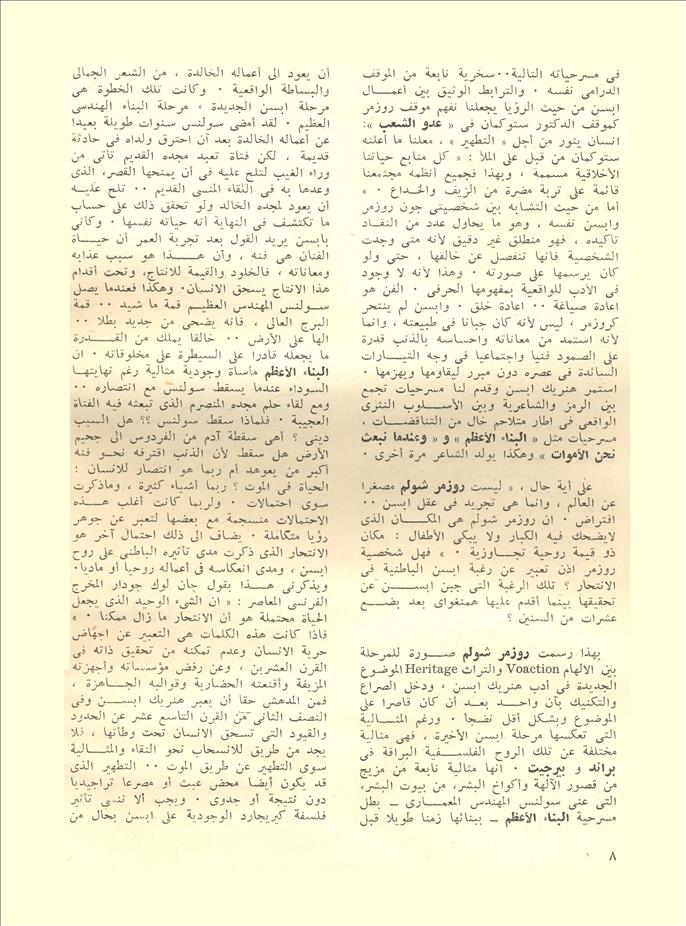 فى مسرحياته التالية..سخرية نابعة من الموقف
الدرامى نفسه . والترابط الوثيق بين أعمــال
ابسن من حيث الرؤيا يجعلنا نفهم موقف روزمر
كموقف الدكتور ستوكمان فى « عدو الشعب »:
انسان يثور من أجل « التطهير » ، معلنا ما أعلنه
ستوكمان من قبل على الملأ : « كل منابع حياتنا
الأخلاقية مسممة ، وبهذا فجميع أنظمه مجتمعنا
قائمة على تربة مضرة من الزيف والخداع . »
أما من حيث التشابه بين شخصيتى جون روزمر
وابسن نفسه ، وهو ما يحاول عدد من النقـاد
تأكيده ، فهو منطلق غير دقيق لأنه متى وجدت
الشخصية فانها تنفصل عن خالقها ، حتى ولو
كان يرسمها على صورته . وهذا لأنه لا وجود
فى الأدب للواقعية بمفهومها الحرفى . الفن هو
اعادة صياغة .. اعادة خلق . وابسن لم ينتحر
كروزمر ، ليس لأنه كان جبانا فى طبيعته ، وانما
لأنه استمد من معاناته واحساسه بالذنب قدرة
على الصمود فنيا واجتماعيا فى وجه التيــارات
السائدة فى عصره دون مبرر ليقاومها ويهزمها .
استمر هنريك ابسن وقدم لنا مسرحيات تجمع
بين الرمز والشاعرية وبين الأســلوب النثرى
الواقعى فى اطار متلاحم خال من التناقضـات ،
مسرحيات مثل « البناء الأعظم » و « وعندما نبعث
نحن الأموات » وهكذا يولد الشاعر مرة أخرى .
على أية حال ، « ليست روزمر شولم مصغرا
عن العالم ، وانما هى تجريد فى عقل ابسن ..
افتراض . ان روزمر شولم هى المكــان الذى
لايضحك فيه الكبار ولا يبكى الأطفال : مكان
ذو قيمة روحية تجــاوزية . » فهل شخصية
روزمر اذن تعبير عن رغبة ابسن الباطنية فى
الانتحار ؟ تلك الرغبة التى جبن ابســـن عن
تحقيقها بينما أقدم عليها همنغواى بعد بضــع
عشرات من السنين ؟
بهذا رسمت روزمر شولم صــورة للمرحلة
بين الالهام Voaction والتراث Heritage الموضوع
الجديدة فى أدب هنريك ابسن ، ودخل الصراع
والتكنيك بآن واحــد بعــد أن كان قاصرا على
الموضوع وبشكل أقل نضجا . ورغم المثــالية
التى تعكسها مرحلة ابسن الأخيرة ، فهى مثالية
مختلفة عن تلك الروح الفلســفية البراقة فى
براند و بيرجيت . انها مثالية نابعة من مزيج
من قصور الآلهة وأكواخ البشر، من بيوت البشر،
التى عنى سولنس المهندس المعمــارى ــ بطل
مسرحية البناء الأعظم ــ ببنائها زمنا طويلا قبل
أن يعود الى أعماله الخالدة ، من الشعر الجمالى
والبساطة الواقعية . وكانت تلك الخطوة هى
مرحلة ابسن الجديدة ، مرحلة البناء الهندسى
العظيم . لقد أمضى سولنس سنوات طويلة بعيدا
عن أعماله الخالدة بعد أن احترق ولداه فى حادثة
قديمة ، لكن فتاة تعبد مجده القديم تأتى من
وراء الغيب لتلح عليه فى أن يمنحها القصر، الذى
وعدها به فى اللقاء المنسى القديم .. تلح عليــه
أن يعود لمجده الخالد ولو تحقق ذلك على حساب
ما تكتشف فى النهاية أنه حياته نفسها . وكأنى
بابسن يريد القول بعد تجربة العمر أن حيــاة
الفنان هى فنه ، وأن هــــذا هو سبب عذابه
ومعاناته ، فالخلود والقيمة للانتاج، وتحت أقدام
هذا الانتاج يسحق الانسان. وهكذا فعندما يصل
سـولنس المهندس العظيـم قمة ما شيد .. قمة
البرج العالى ، فانه يضحى من جديد بطلا ..
الها على الأرض .. خالقا يملك من القــدرة
ما يجعله قادرا على السيطرة على مخلوقاته . ان
البناء الأعظم مأساة وجودية مثالية رغم نهايتهـا
السوداء عندما يسقط سولنس مع انتصاره ..
ومع لقاء حلم مجده المنصرم الذى تبعثه فيه الفتاة
العجيبة . فلماذا سقط سولنس ؟؟ هل السبب
دينى ؟ أهى سقطة آدم من الفردوس الى جحيم
الأرض هل سقط لأن الذنب اقترفه نحـو فنه
أكبر من يوعهد أم ربما هو انتصار للانسان :
الحياة فى الموت ؟ ربما أشياء كثيرة ، وماذكرت
سوى احتمالات . ولربما كانت أغلب هــذه
الاحتمالات منسجمة مع بعضها لتعبر عن جوهر
رؤيا متكاملة . يضاف الى ذلك احتمال آخر هو
الانتحار الذى ذكرت مدى تأثيره الباطنى على روح
ابسن ، ومدى انعكاسه فى أعماله روحيا أو ماديا.
ويذكرنى هــذا بقول جان لوك جودار المخرج
الفرنسى المعاصر : « ان الشىء الوحيد الذى يجعل
الحياة محتملة هو أن الانتحار ما زال ممكنا . »
فاذا كانت هذه الكلمات هى التعبير عن اجهاض
حرية الانسان وعدم تمكنه من تحقيق ذاته فى
القرن العشرين ، وعن رفض مؤسساته وأجهزته
المزيفة وأقنعته الحضارية وقوالبه الجــاهزة ،
فمن المدهش حقا أن يعبر هنريك ابســـن وفى
النصف الثانى من القرن التاسع عشر عن الحدود
والقيود التى تسحق الانسان تحت وطأتها ، فلا
يجد من طريق للانسحاب نحو النقاء والمثــالية
سوى التطهير عن طريق الموت .. التطهير الذى
قد يكون أيضا محض عبث أو مصرعا تراجيديا
دون نتيجة أو جدوى . ويجب ألا ننسى تأثير
فلسفة كيريجارد الوجودية على ابسن بحال من
٨